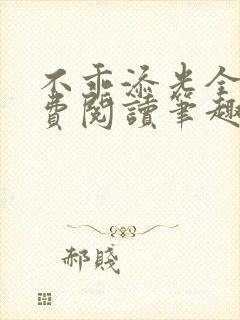 不乖添光全
費閱讀筆趣
郝賤